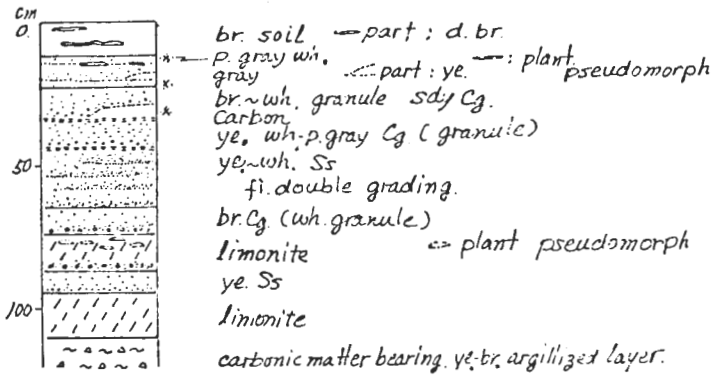 cm
0.
br. soil part : d. br.
p. gray wh. : plant pseudomorph
gray part : ye.
br.~wh. granule sdy Cg.
Carbon
ye. wh-p.gray Cg (granule)
50
ye.~wh. Ss
fi. double grading.
br. Cg. (wh. granule)
limonite plant pseudomorph
ye. Ss
100
limonite
carbonic matter bearing. ye-br. argillized layer.